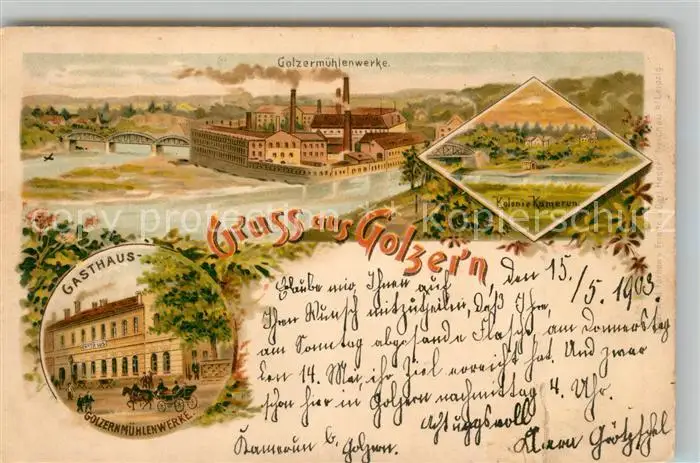 Golzermühlenwerke.
Kolonie Kamerun.
Gruss aus Golzern
GASTHAUS-
GASTHAUS
GOLZERNMÜHLENWERKE.
den 15./5. 1903
Erlaube mir, Ihnen auf
Ihren Wunsch mitzuteilen, daß Ihre,
am Sonntag abgesandte Flasche am Donnerstag
den 14. Mai, ihr Ziel erreicht hat. Und zwar
schon hier in Golzern nachmittag 4 Uhr.
Achtungsvoll
Kamerun b. Golzern.